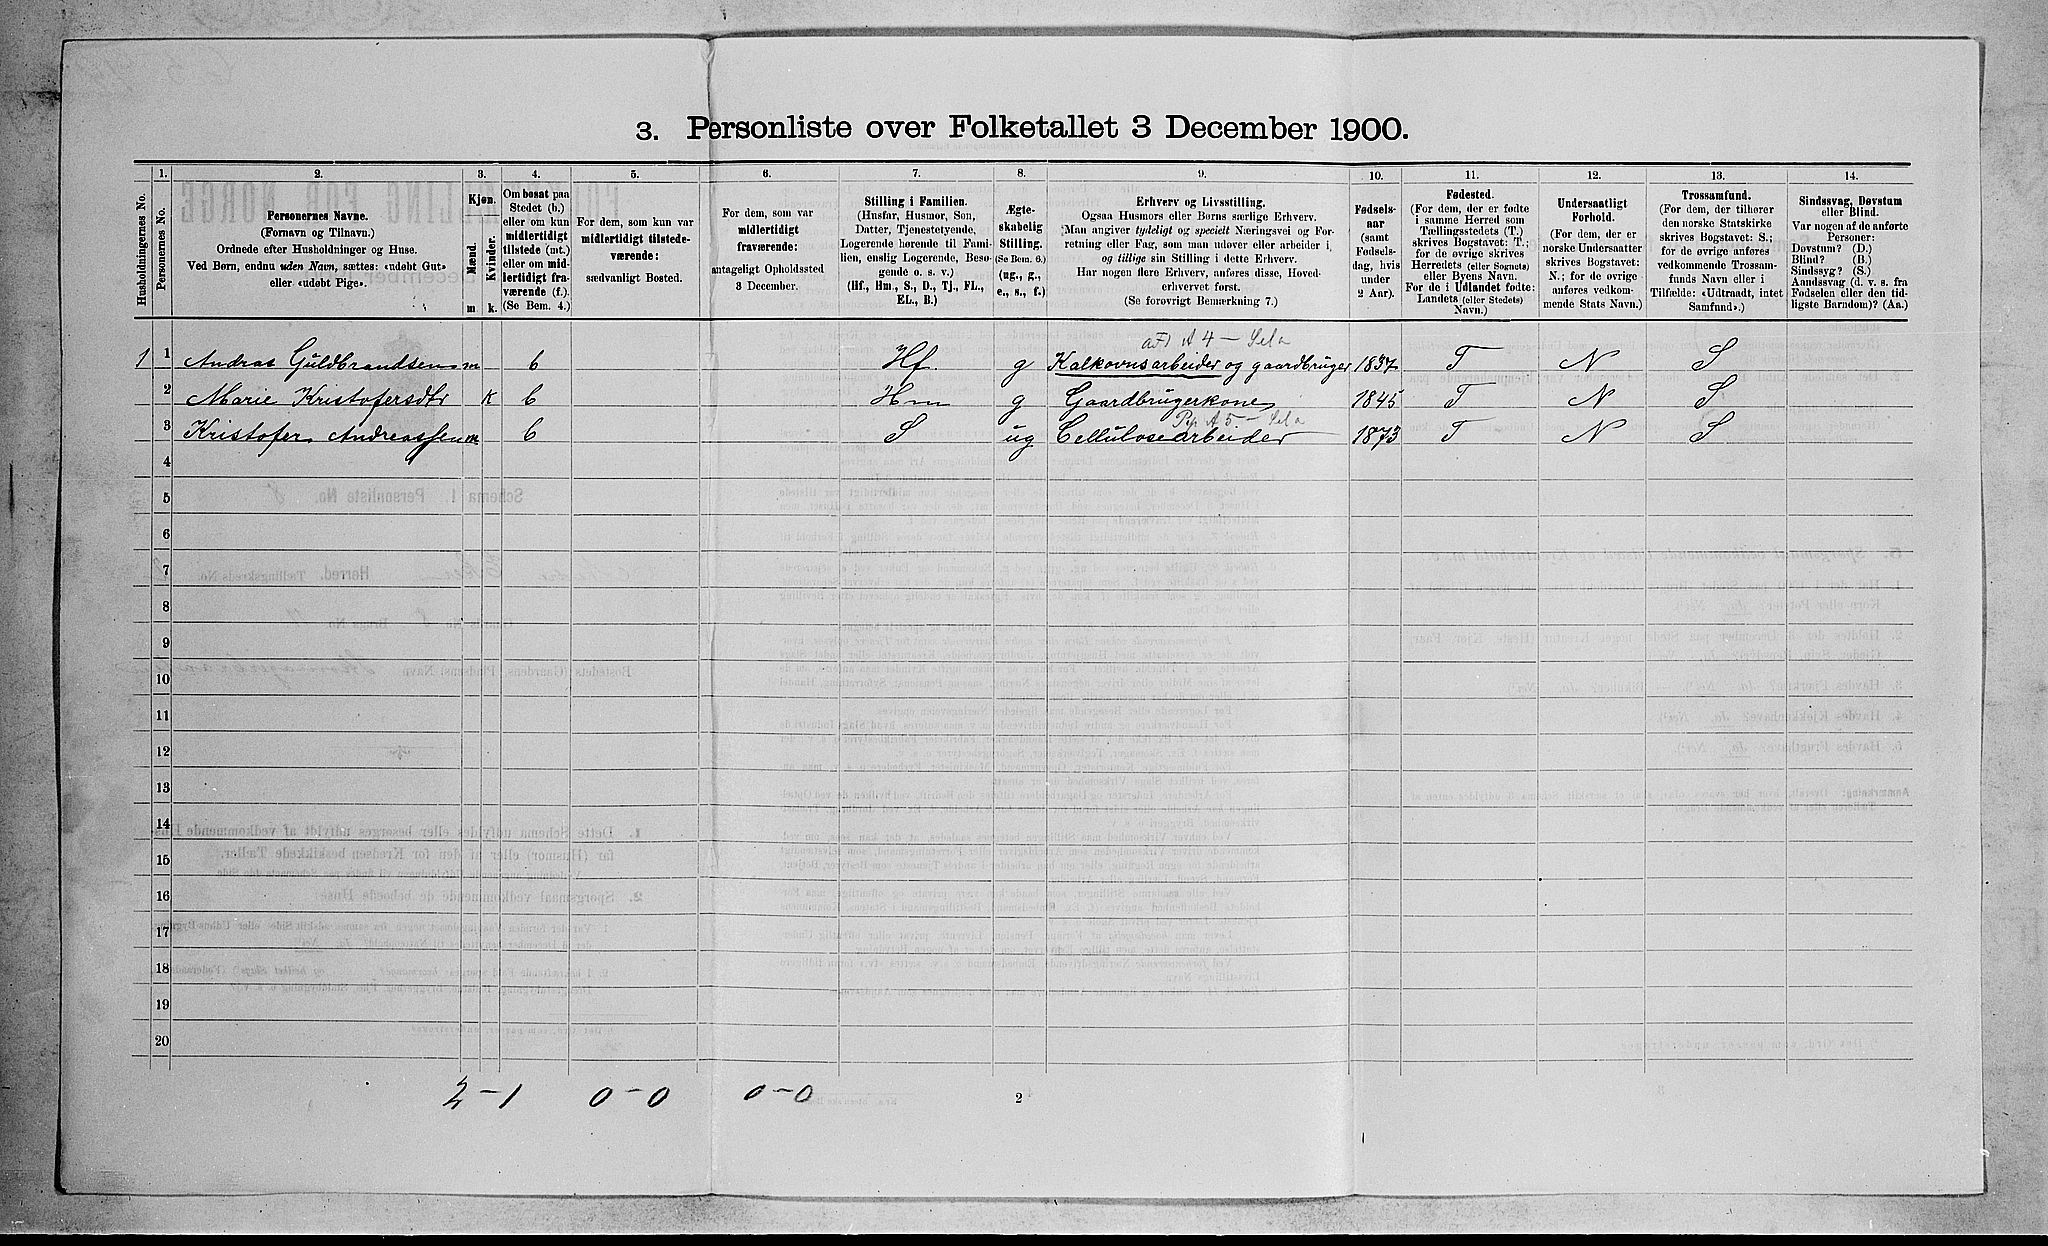 3. Personliste over Folketallet 3 December 1900.
Husholdningernes No.
1. Personernes No.
2. Personernes Navne.
(Fornavn og Tilnavn.)
Ordnede efter Husholdninger og Huse.
Ved Børn, endnu uden Navn, sættes: «udøbt Gut»
eller «udøbt Pige».
3. Kjøn.
Mænd. Kvinder.
m k.
4. Om bosat paa
Stedet (b.)
eller om kun
midlertidigt
tilstede (mt.)
eller om mid-
lertidigt fra-
værende (f.).
(Se Bem. 4.)
5. For dem, som kun var
midlertidigt tilstede-
værende:
sædvanligt Bosted.
6. For dem, som var
midlertidigt
fraværende:
antageligt Opholdssted
3 December.
7. Stilling i Familien.
(Husfar, Husmor, Søn,
Datter, Tjenestetyende,
Logerende hørende til Fami-
lien, enslig Logerende, Besø-
gende o. s. v.)
(Hf., Hm., S., D., Tj., FL.,
EL., B.)
8. Ægte-
skabelig
Stilling.
(Se Bem. 6.)
(ug., g.,
e., s., f.)
9. Erhverv og Livsstilling.
Ogsaa Husmors eller Børns særlige Erhverv.
Man angiver tydeligt og specielt Næringsvei og For-
retning eller Fag, som man udover eller arbeider i,
og tillige sin Stilling i dette Erhverv.
Har nogen flere Erhverv, anføres disse, Hoved-
erhvervet først.
(Se forøvrigt Bemærkning 7.)
10. Fødsels-
aar
(samt
Fødsels-
dag, hvis
under
2 Aar).
11. Fødested.
(For dem, der er fødte
i samme Herred som
Tællingsstedets (T.)
skrives Bogstavet: T.;
for de øvrige skrives
Herredets (eller Sognets)
eller Byens Navn.
For de i Udlandet fødte:
Landets (eller Stedets)
Navn.)
12. Undersaatligt
Forhold.
(For dem, der er
norske Undersaatter
skrives Bogstavet:
N.; for de øvrige
anføres vedkom-
mende Stats Navn.)
13. Trossamfund.
(For dem, der tilhører
den norske Statskirke
skrives Bogstavet: S.;
for de øvrige anføres
vedkommende Trossam-
funds Navn eller i
Tilfælde: «Udtraadt, intet
Samfund».)
14. Sindssvag, Døvstum
eller Blind.
Var nogen af de anførte
Personer:
Døvstum? (D.)
Blind? (B.)
Sindssyg? (S.)
Aandssvag (d. v. s. fra
Fødselen eller den tid-
ligste Barndom)? (Aa.)
A 4 –
1 1 Andras Guldbrandsen m b Hf g Kalkovnsarbeider og gaardbruger 1837 T N S
2 Marie Kristofersdtr K b Hm g Gaardbrugerkone 1845 T N S
Pip A 5. –
3 Kristofer Andreassen m b S ug Cellulosearbeider 1873 T N S
4
5
6
7
8
9
10
11
12
13
14
15
16
17
18
19
20
2 – 1 0 – 0 0 – 0
2